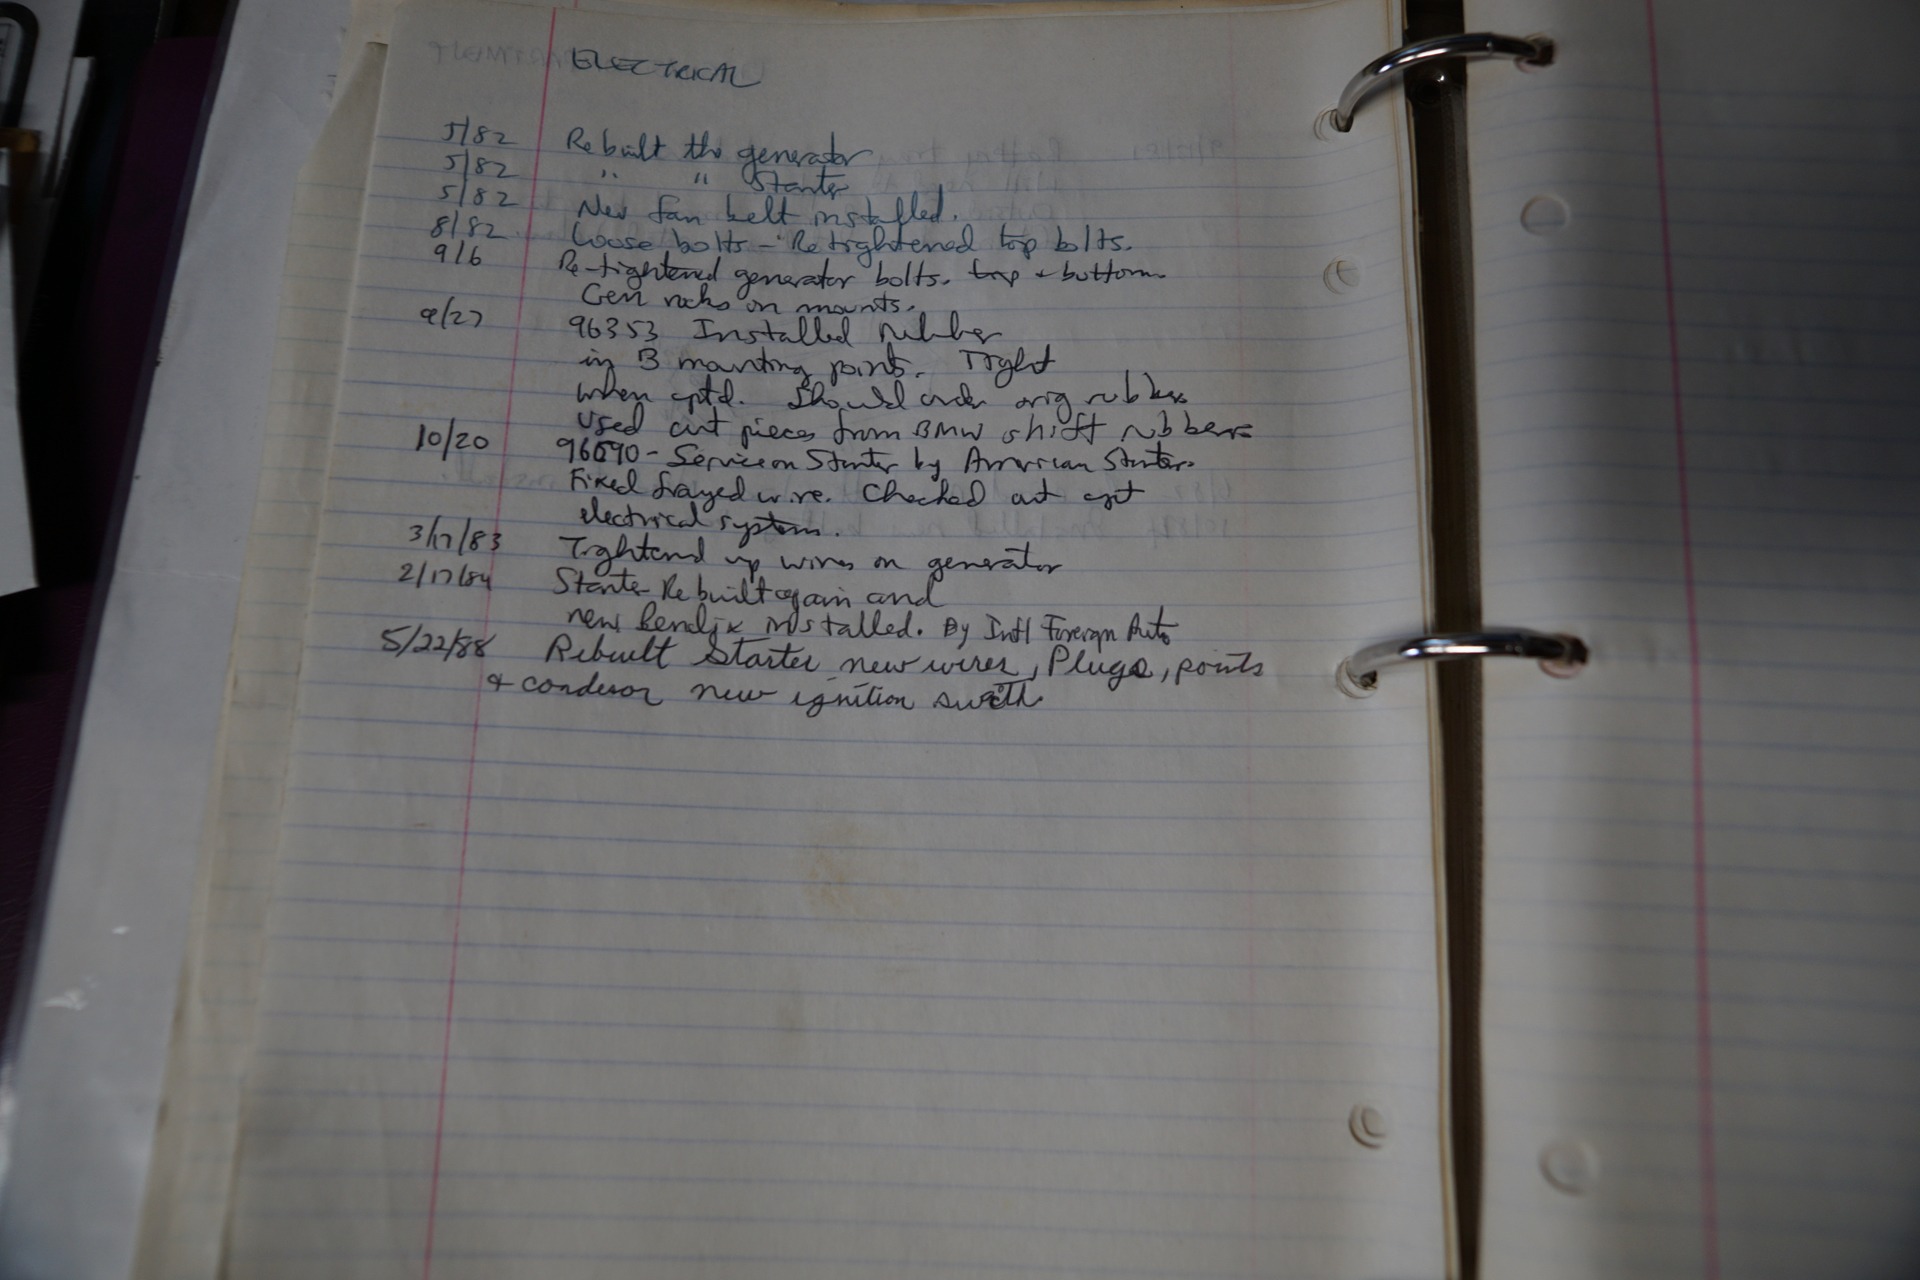 ELECTRICAL
5/82 Rebuilt the generator
5/82 " " Starter
5/82 New fan belt installed.
8/82 Loose bolts - Retightened top bolts.
9/6 Re-tightened generator bolts. top + bottom.
Gen rocks on mounts.
9/27 96353 Installed rubber
in 3 mounting points. Tight
when Should order orig rubber
Used cut pieces from BMW shift rubbers
10/20 96690 - Service on Starter by American Starter.
Fixed frayed wire. Checked out
electrical system.
3/17/83 Tightend up wires on generator
2/17/84 Starter Rebuilt again and
new bendix installed. By Intl Foreign Auto
5/22/88 Rebuilt Starter new wires, Plugs, points
+ condesor new ignition swith